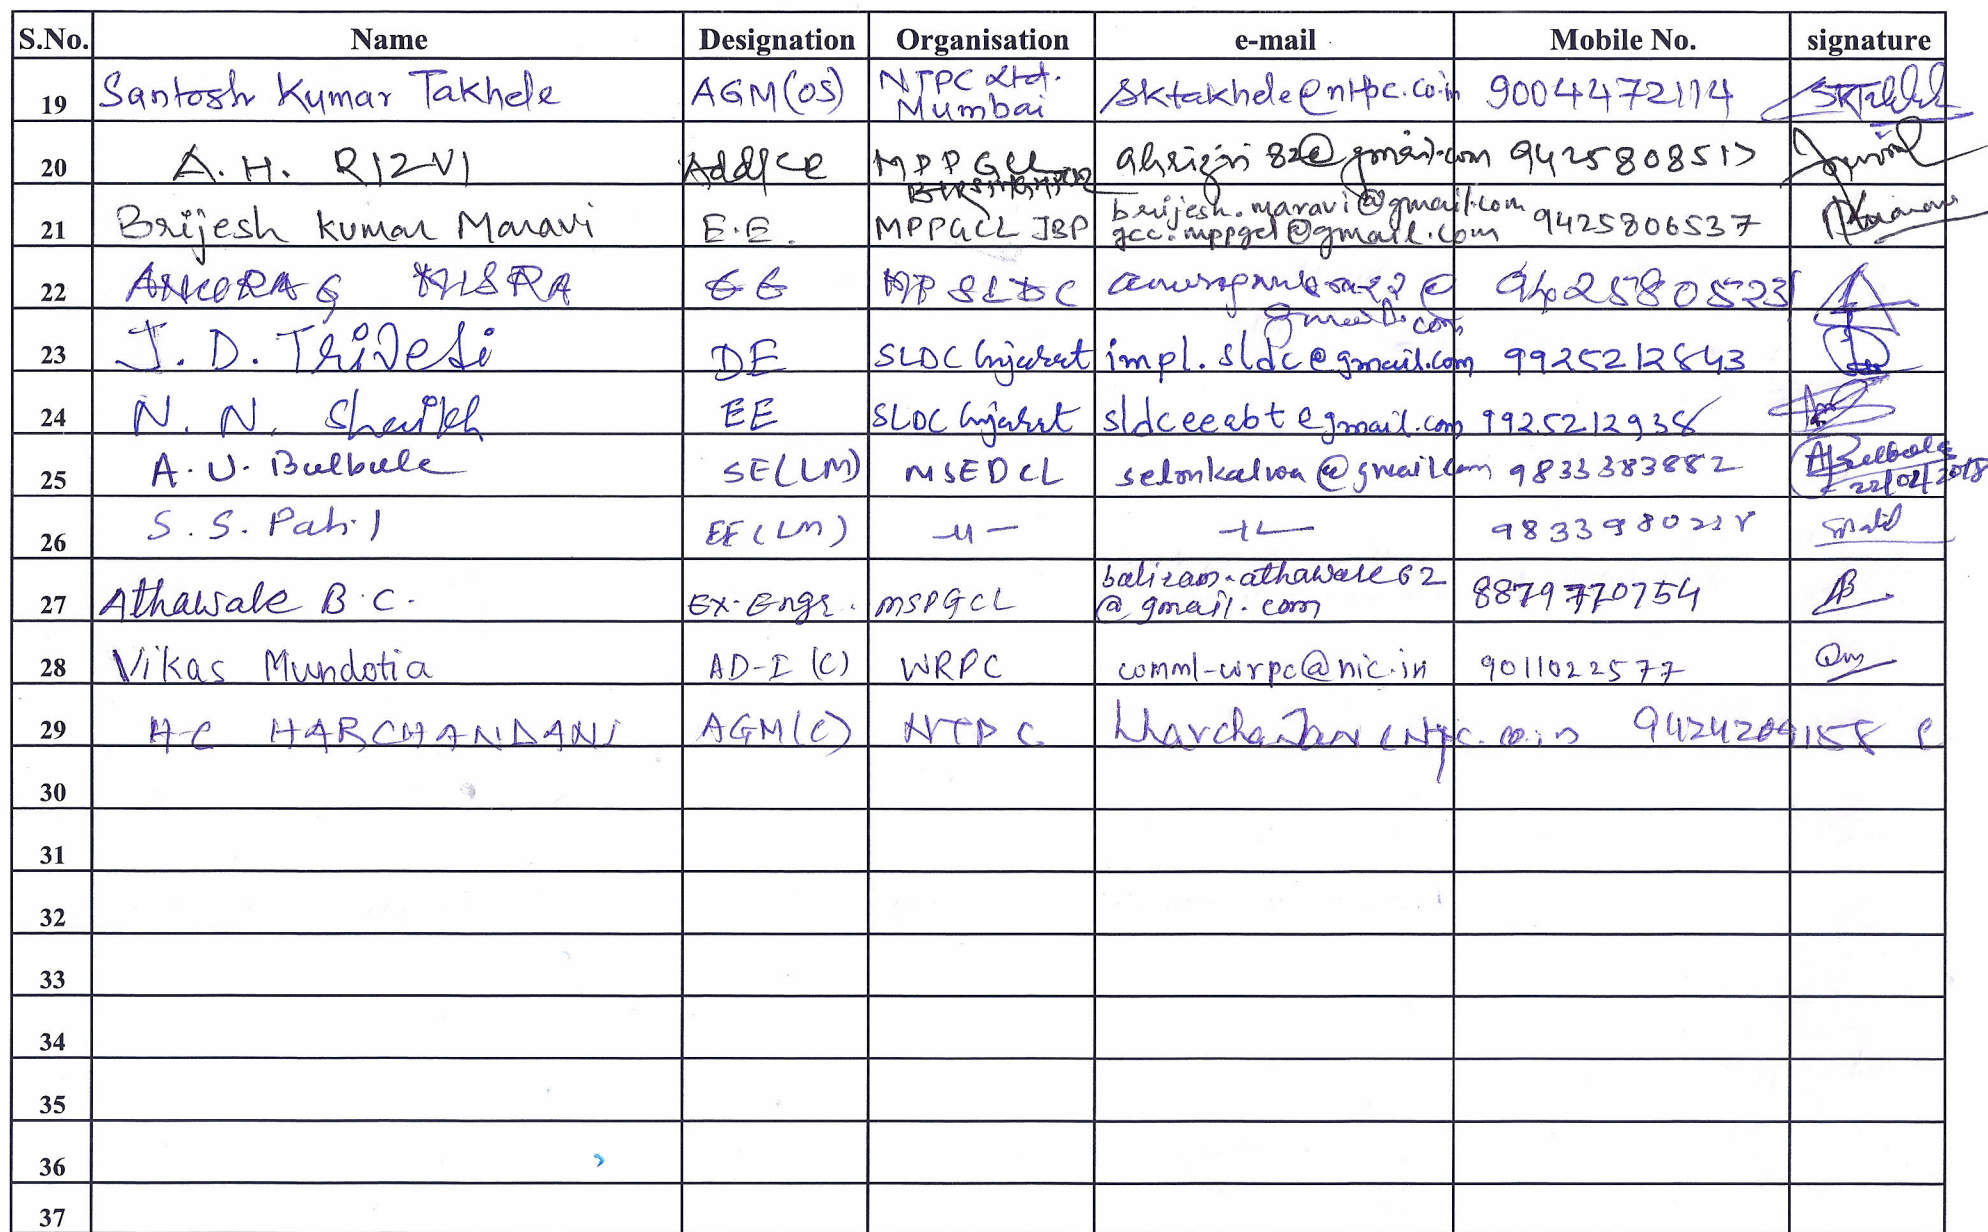 S.No. Name Designation Organisation e-mail Mobile No. signature
19 Santosh Kumar Takhele AGM(OS) NTPC Ltd. Mumbai sktakhele@ntpc.co.in 9004472114
20 A. H. RIZVI Addl CE MPPGCL 9425808517
21 Brijesh Kumar Maravi E.E. MPPGCL JBP brijesh.maravi@gmail.com gcc.mppgcl@gmail.com 9425806537
22 ANURAG MISRA EE MP SLDC 9425805231
23 J. D. Trivedi DE SLDC Gujarat impl.sldc@gmail.com 9925212843
24 N. N. Shaikh EE SLDC Gujarat sldceeabt@gmail.com 9925212938
25 A. U. Bulbule SE(LM) MSEDCL selmkalwa@gmail.com 9833383882 ABulbule 22/02/2018
26 S. S. Patil EE(LM) —"— —"— 9833980228
27 Athawale B.C. Ex. Engr. MSPGCL baliram.athawale62 @gmail.com 8879770754
28 Vikas Mundotia AD-I (C) WRPC comml-wrpc@nic.in 9011022577
29 H C HARCHANDANI AGM(C) NTPC 9424209158
30
31
32
33
34
35
36
37